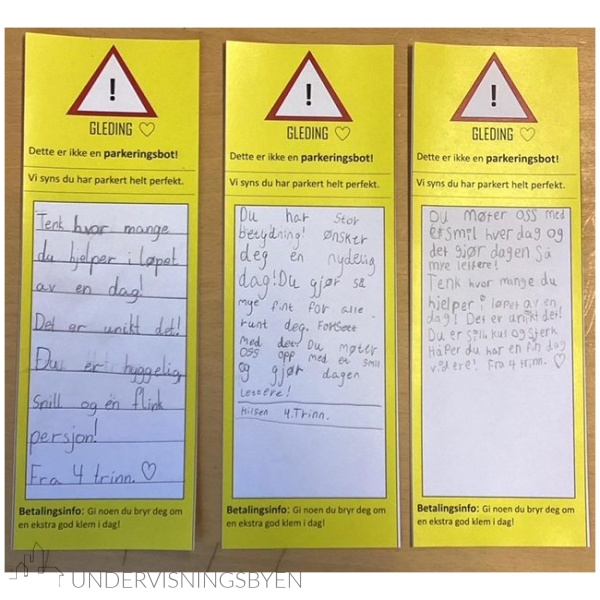 GLEDING ♡
Dette er ikke en parkeringsbot!
Vi syns du har parkert helt perfekt.
Tenk hvor mange
du hjelper i løpet
av en dag!
Det er unikt det!
Du er hyggelig,
snill og en flink
persjon!
Fra 4 trinn. ♡
Betalingsinfo: Gi noen du bryr deg om
en ekstra god klem i dag!
GLEDING ♡
Dette er ikke en parkeringsbot!
Vi syns du har parkert helt perfekt.
Du har stor
betydning! Ønsker
deg en nydelig
dag! Du gjør så
mye fint for alle
runt deg. Forsett
med det! Du møter
oss opp med et smil
og gjør dagen
lettere!
Hilsen 4.Trinn.
Betalingsinfo: Gi noen du bryr deg om
en ekstra god klem i dag!
GLEDING ♡
Dette er ikke en parkeringsbot!
Vi syns du har parkert helt perfekt.
Du møter oss med
et smil hver dag og
det gjør dagen så
mye lettere!
Tenk hvor mange du
hjelper i løpet av en
dag! Det er unikt det!
Du er snill kul og sterk
Håper du har en fin dag
videre! Fra 4 trinn. ♡
Betalingsinfo: Gi noen du bryr deg om
en ekstra god klem i dag!
UNDERVISNINGSBYEN